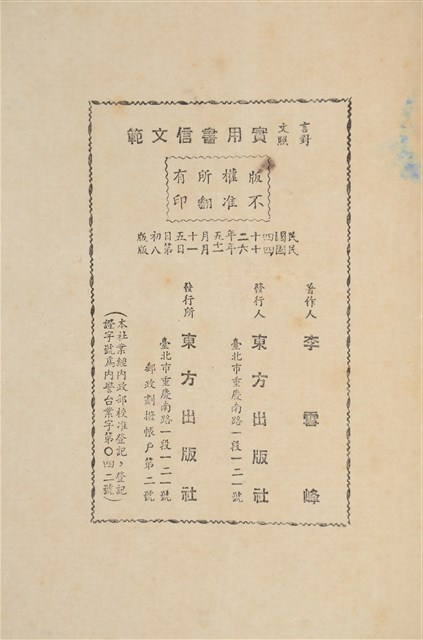 言文對照
實用書信文範
版權所有
不准翻印
民國四十二年五月十五日初版
民國四十六年十二月一日第八版
著作人 李雲峰
發行人 東方出版社
臺北市重慶南路一段一二一號
發行所 東方出版社
臺北市重慶南路一段一二一號
郵政劃撥帳戶第二號
(本社業經內政部核准登記,登記
證字號為內警台業字第〇四二號)